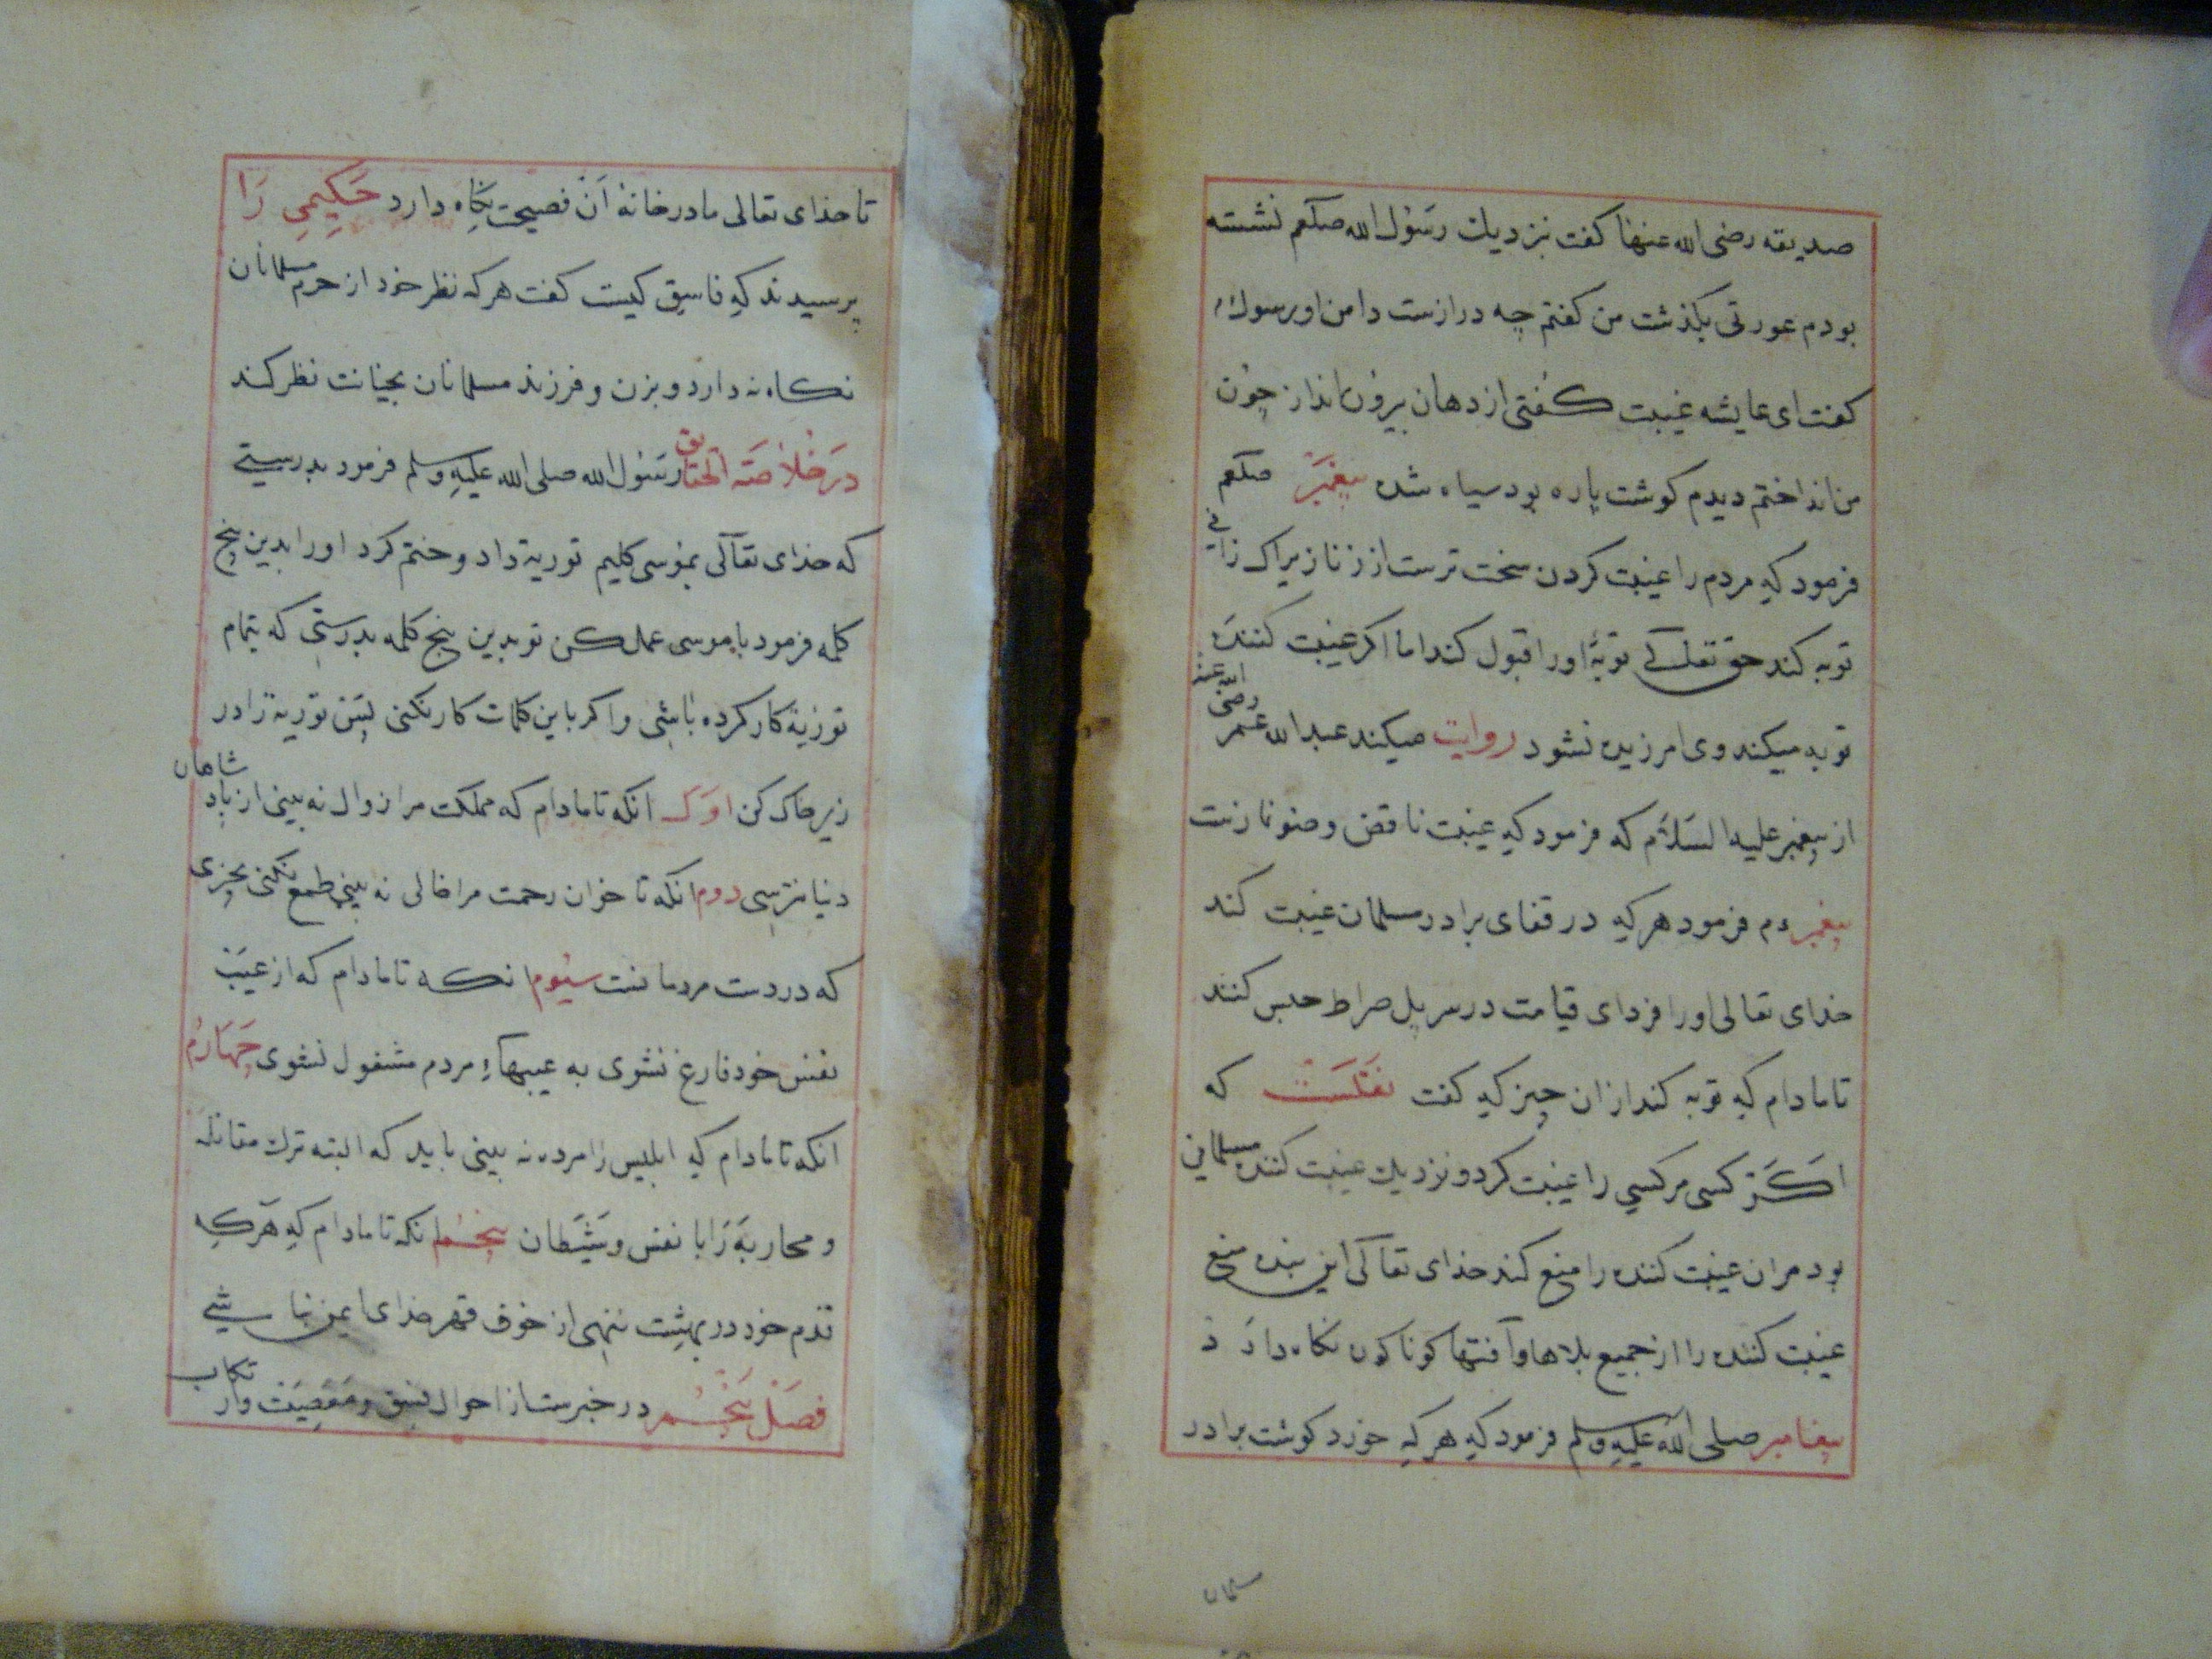 صدیقه رضی الله عنها کفت بنزدیك رسول الله صلعم نشسته
بودم عورتی بکذشت من کفتم چه درازست دامن او رسول
کفت ای عایشه غیبت کفتی از دهان بیرون انداز چون
من انداختم دیدم کوشت پاره بود سیاه شده پیغمبر صلعم
فرمود که مردم را غیبت کردن سخت ترست از زنا زیراك زانی
توبه کند حق تعالی توبۀ او را قبول کند اما اکر غیبت کننده
توبه میکند وی امرزیده نشود روایت میکند عبد الله عمر رضی الله عنه
از پیغمبر علیه السلام که فرمود که غیبت ناقض وضو نمازنت
پیغمبر م فرمود هر که در قفای برادر مسلمان غیبت کند
خدای تعالی او را فردای قیامت در سر پل صراط حبس کنند
تا مادام که توبه کند از ان چیز که کفت نقلست که
اکر کسی مر کسی را غیبت کرد و نزدیك غیبت کننده مسلمانی
بود مر ان غیبت کننده را منع کند خدای تعالی این بنده منع
غیبت کننده را از جمیع بلاها و آفتها کوناکون نکاه دارد
پیغامبر صلی الله علیه وسلم فرمود که هر که خورد کوشت برادر
مسلمان
تا خدای تعالی ما در خانۀ آن فصیحت نکاه دارد حکیمی را
پرسیدند که فاسق کیست کفت هر که نظر خود از حرم مسلمانان
نکاه نه دارد و بزن و فرزند مسلمانان بخیانت نظر کند
در خلاصة الحقایق رسول الله صلی الله علیه وسلم فرمود بدرستی
که خدای تعالی بموسی کلیم توریة داد و ختم کرد او را بدین پنج
کلمه فرمود یا موسی عمل کن تو بدین پنج کلمه بدرستی که بتمام
توریة کار کرده باشی و اکر باین کلمات کار نکنی پس توریة را در
زیر خاك کن اول انکه تا مادام که مملکت مرا زوال نه بینی از پادشاهان
دنیا نترسی دوم انکه تا خوان رحمت مرا خالی نه بینی طمع نکنی بچیزی
که در دست مردمانست سیوم انکه تا مادام که از عیب
نفس خود فارغ نشوی به عیبهاء مردم مشغول نشوی چهارم
انکه تا مادام که ابلیس را مرده نه بینی باید که البته ترك مقاتله
و محاربه را با نفس و شیطان پنجم انکه تا مادام که هر که
قدم خود در بهشت ننهی از خوف قهر خدای ایمن نباشی
فصل پنجم در خبرست از احوال فسق و معصیت وارتکاب